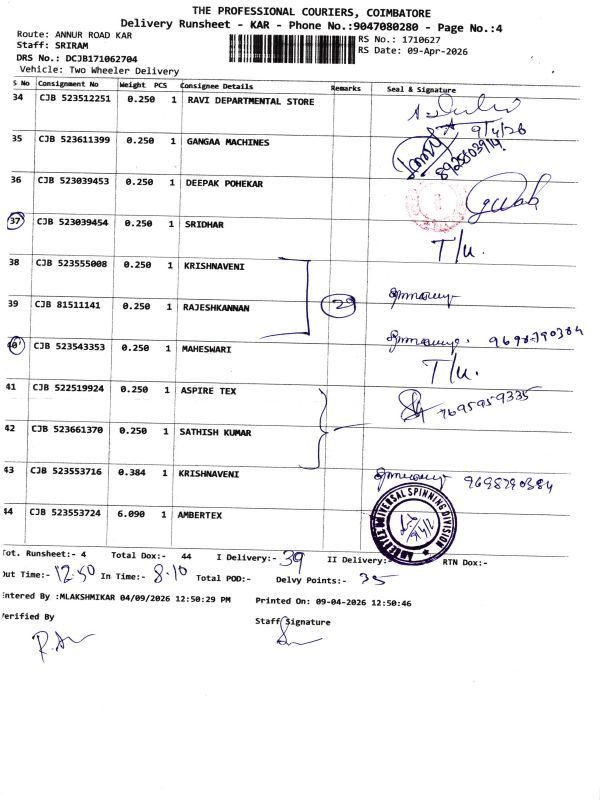 THE PROFESSIONAL COURIERS, COIMBATORE
Delivery Runsheet - KAR - Phone No.:9047080280 - Page No.:4
Route: ANNUR ROAD KAR
RS No.: 1710627
Staff: SRIRAM
RS Date: 09-Apr-2026
DRS No.: DCJB171062704
Vehicle: Two Wheeler Delivery
S No Consignment No Weight PCS Consignee Details Remarks Seal & Signature
34 CJB 523512251 0.250 1 RAVI DEPARTMENTAL STORE
9/4/26
35 CJB 523611399 0.250 1 GANGAA MACHINES
36 CJB 523039453 0.250 1 DEEPAK POHEKAR
37 CJB 523039454 0.250 1 SRIDHAR T/u.
38 CJB 523555008 0.250 1 KRISHNAVENI
39 CJB 81511141 0.250 1 RAJESHKANNAN
9698790384
40 CJB 523543353 0.250 1 MAHESWARI T/u.
41 CJB 522519924 0.250 1 ASPIRE TEX 7695959335
42 CJB 523661370 0.250 1 SATHISH KUMAR
43 CJB 523553716 0.384 1 KRISHNAVENI 9698790384
44 CJB 523553724 6.090 1 AMBERTEX
UNIVERSAL SPINNING DIVISION
Tot. Runsheet:- 4 Total Dox:- 44 I Delivery:- 39 II Delivery:- RTN Dox:-
Out Time:- 12.50 In Time:- 8.10 Total POD:- Delvy Points:- 35
Entered By :MLAKSHMIKAR 04/09/2026 12:50:29 PM Printed On: 09-04-2026 12:50:46
Verified By
Staff Signature